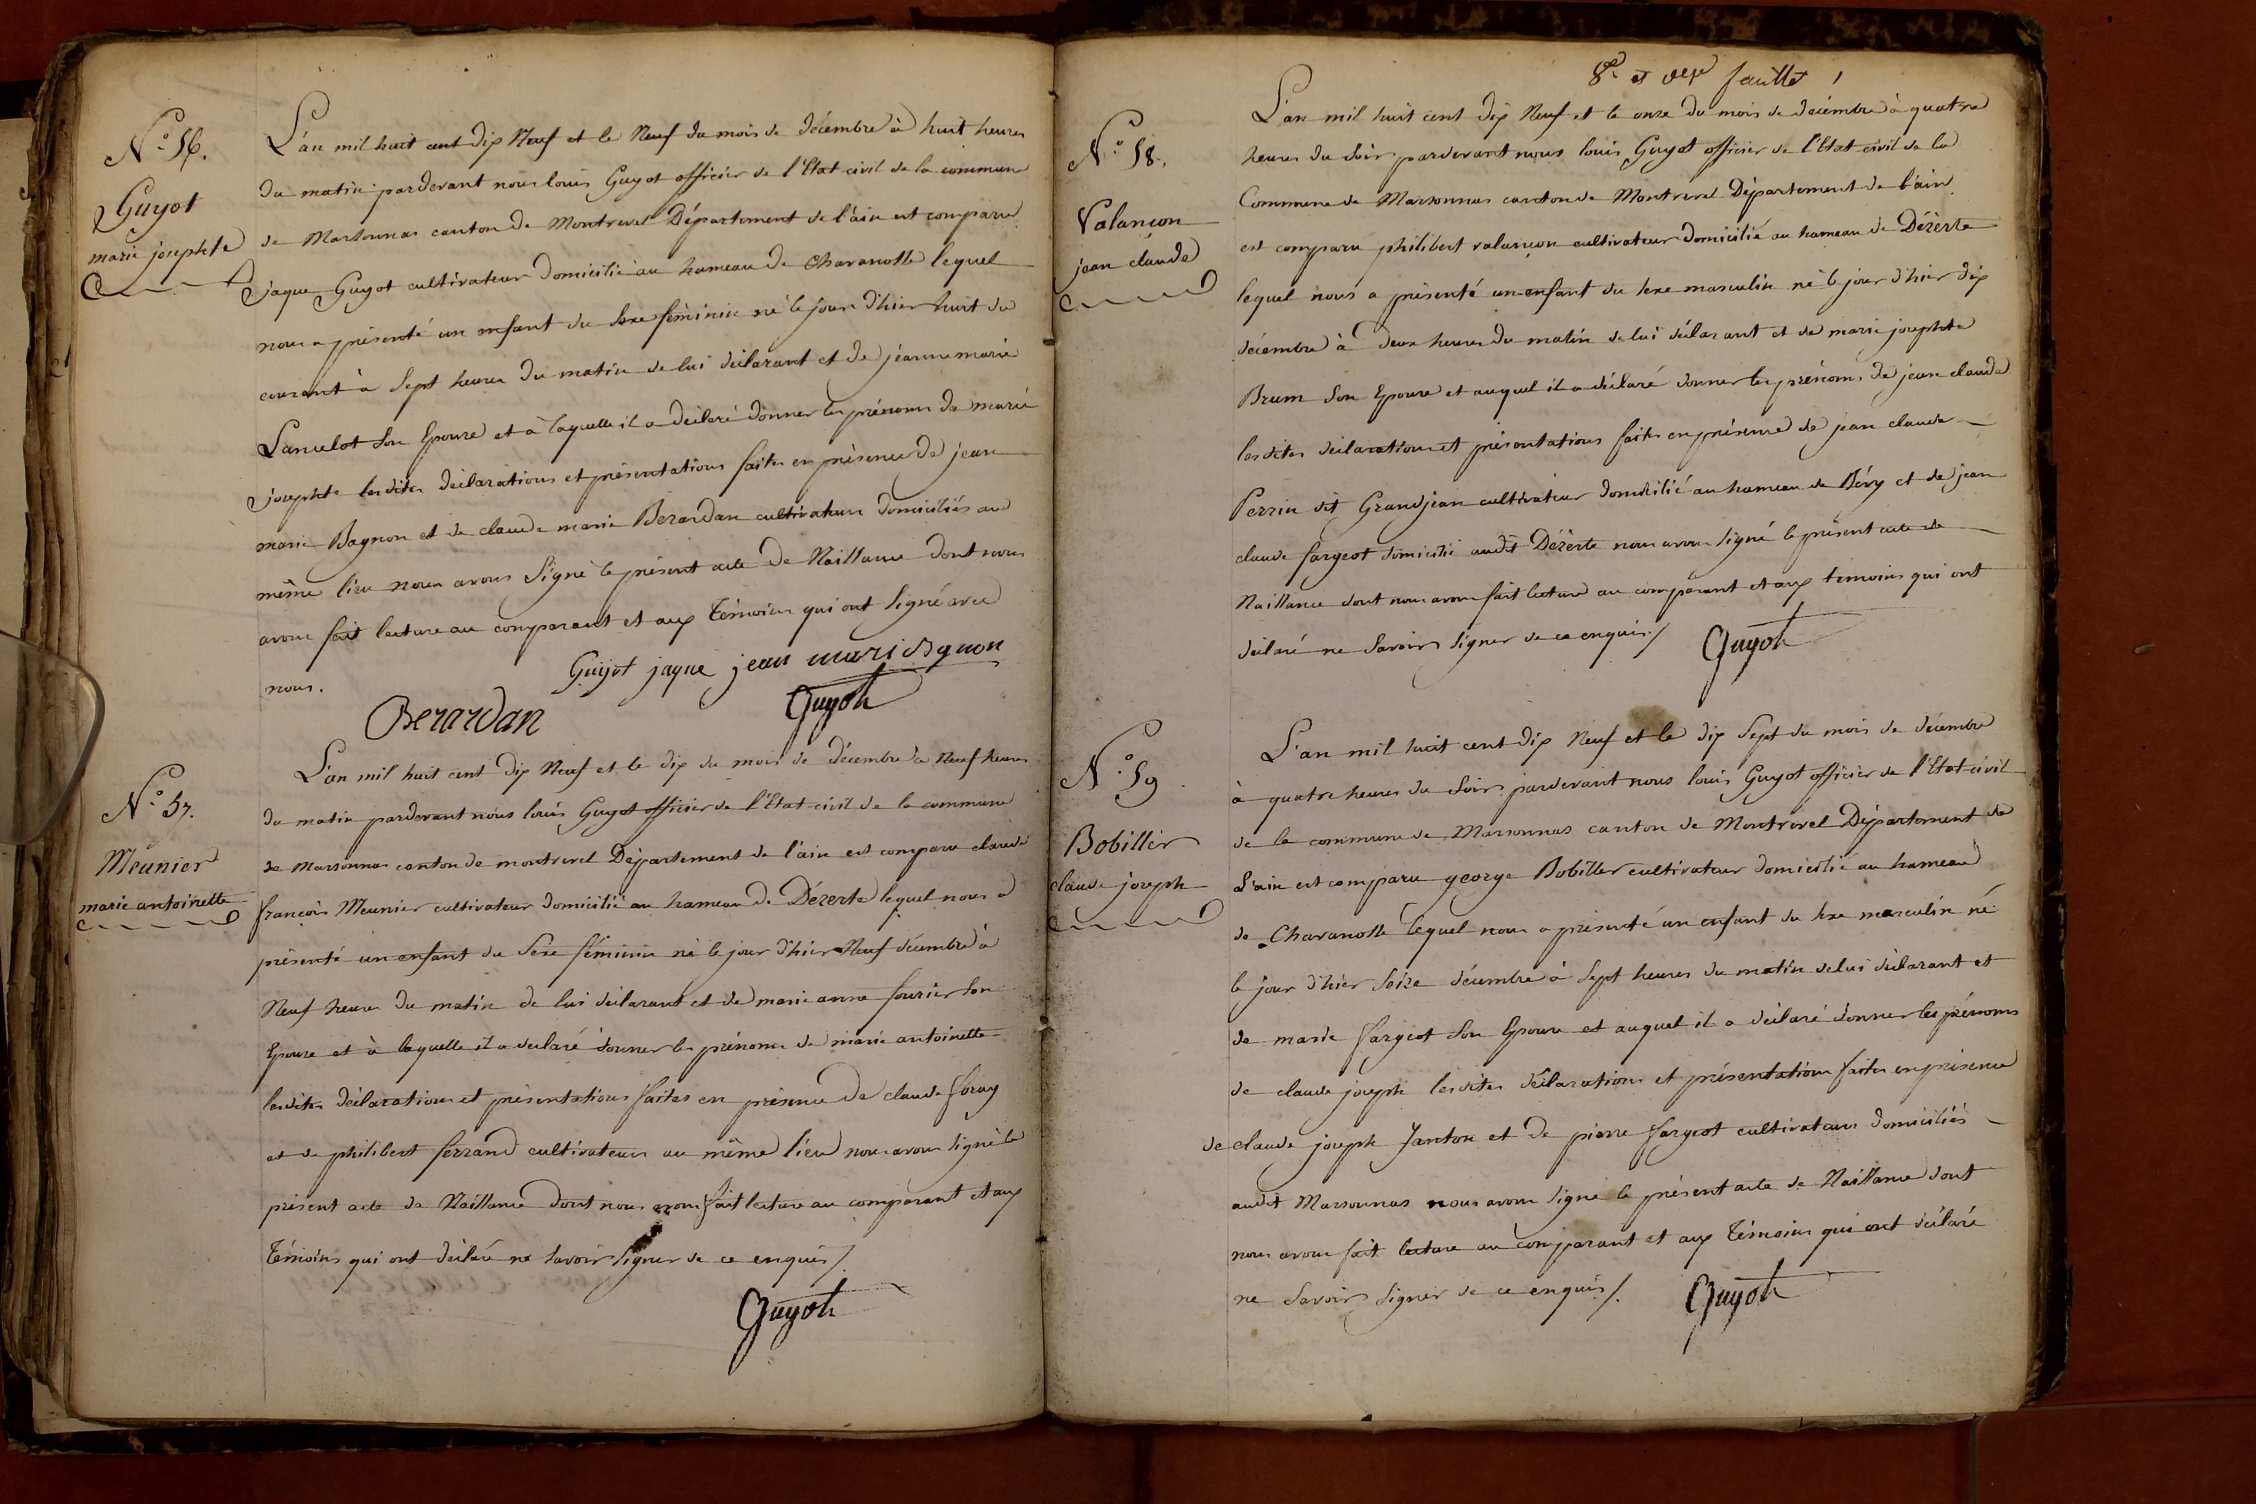 N.° 56.
Guyot
marie josephte
L'an mil huit cent dix Neuf et le Neuf du mois de décembre à huit heures
du matin pardevant nous louis Guyot officier de l'Etat civil de la commune
de Marsonnas canton de Montrevel Département de l'ain est comparu
jaque Guyot cultivateur domicilié au hameau de Charanolle lequel
nous a présenté un enfant du sexe féminin né le jour d'hier huit du
courant à sept heures du matin de lui déclarant et de jeanne marie
Lancelot son Epouse et à laquelle il a déclaré donner les prénoms de marie
josephte lesdites déclarations et présentations faites en présence de jean
marie Bagnon et de claude marie Berardan cultivateurs domiciliés au
même lieu nous avons signé le présent acte de Naissance dont nous
avons fait lecture au comparant et aux témoins qui ont signé avec
nous.
Guyot jaque jean mari Bgnon
Berardan Guyot
N.° 57.
Meunier
marie antoinette
L'an mil huit cent dix Neuf et le dix du mois de décembre à Neuf heures
du matin pardevant nous louis Guyot officier de l'Etat civil de la commune
de Marsonnas canton de montrevel Département de l'ain est comparu claude
françois Meunier cultivateur domicilié au hameau de Dézerte lequel nous a
présenté un enfant du sexe féminin né le jour d'hier Neuf décembre à
Neuf heures du matin de lui déclarant et de marie anne fourier son
Epouse et à laquelle il a déclaré donner les prénoms de marie antoinette
lesdites déclarations et présentations faites en présence de claude foray
et de philibert ferrand cultivateurs au même lieu nous avons signé le
présent acte de Naissance dont nous avons fait lecture au comparant et aux
témoins qui ont déclaré ne savoir signer de ce enquis /.
Guyot
8.e et der feuillet
N.° 58.
Valançon
jean claude
L'an mil huit cent dix Neuf et le onze du mois de décembre à quatre
heures du soir pardevant nous louis Guyot officier de l'Etat civil de la
Commune de Marsonnas canton de Montrevel Département de l'ain
est comparu philibert valançon cultivateur domicilié au hameau de Dézerte
lequel nous a présenté un enfant du sexe masculin né le jour d'hier dix
décembre à deux heures du matin de lui déclarant et de marie josephte
Brum son Epouse et auquel il a déclaré donner les prénoms de jean claude
lesdites déclarations et présentations faites en présence de jean claude
Perrin dit Grandjean cultivateur domicilié au hameau de Bévy et de jean
claude fargeot domicilié audit Dézerte nous avons signé le présent acte de
Naissance dont nous avons fait lecture au comparant et aux temoins qui ont
déclaré ne savoir signer de ce enquis /. Guyot
N.° 59
Bobiller
claude joseph
L'an mil huit cent dix Neuf et le dix sept du mois de décembre
à quatre heures du soir pardevant nous louis Guyot officier de l'Etat civil
de la commune de Marsonnas canton de Montrevel Département de
l'ain est comparu george Bobiller cultivateur domicilié au hameau
de Charanolle lequel nous a présenté un enfant du sexe masculin né
le jour d'hier seize décembre à sept heures du matin de lui déclarant et
de marie fargeot son Epouse et auquel il a déclaré donner les prénoms
de claude joseph lesdites déclarations et présentations faites en présence
de claude joseph Janton et de pierre fargeot cultivateurs domiciliés
audit Marsonnas nous avons signé le présent acte de Naissance dont
nous avons fait lecture au comparant et aux témoins qui ont déclaré
ne savoir signer de ce enquis /. Guyot